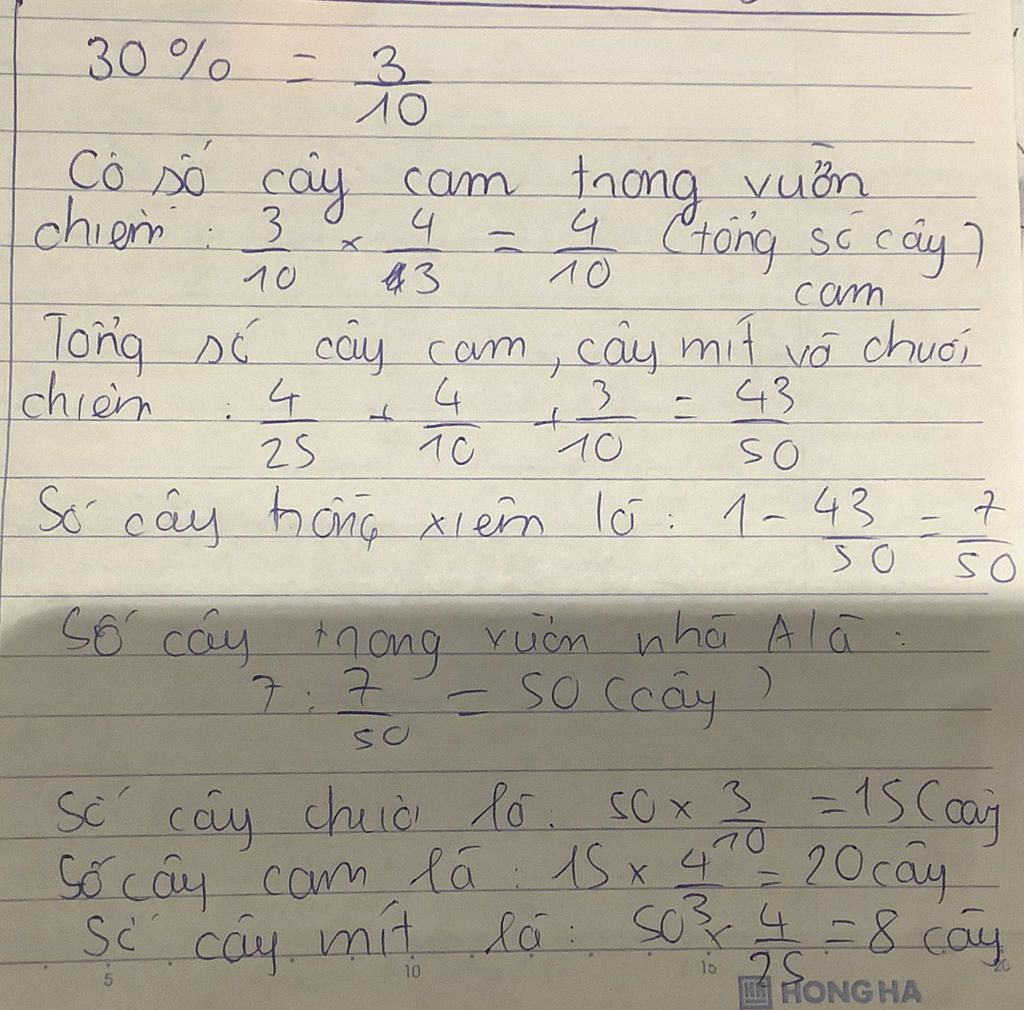 30% = 3/10
Có số cây cam trong vườn
chiếm : 3/10 × 4/3 = 4/10 (tổng số cây)
cam
Tổng số cây cam, cây mít và chuối
chiếm : 4/25 + 4/10 + 3/10 = 43/50
Số cây hồng xiêm là : 1 - 43/50 = 7/50
Số cây trong vườn nhà A là :
7 : 7/50 = 50 (cây)
Số cây chuối là : 50 × 3/10 = 15 (cây)
Số cây cam là : 15 × 4/3 = 20 cây
Số cây mít là : 50 × 4/25 = 8 cây
5 10 15 20
HONG HA